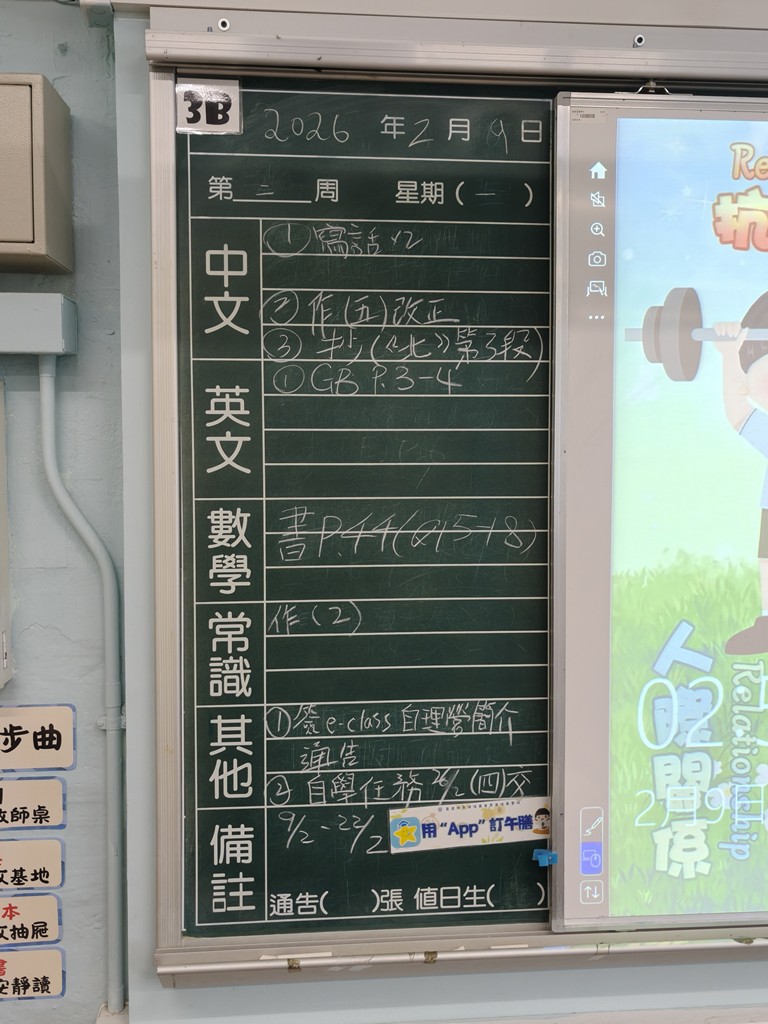 3B
2026 年 2 月 9 日
第 二 周 星期( 一 )
中文
① 寫話 x2
② 作(五)改正
③ 抄(《北》第3段)
英文
① GB P.3-4
數學
書P.44(Q15-18)
常識
作(2)
其他
① 簽e-class 自理營簡介
通告
② 自學任務 26/2 (四)交
備註
9/2 - 22/2
用“App”訂午膳
通告( )張 值日生( )
步曲
教師桌
基地
本
抽屜
安靜讀
抗
人際關係
Relationship
02
2月9日